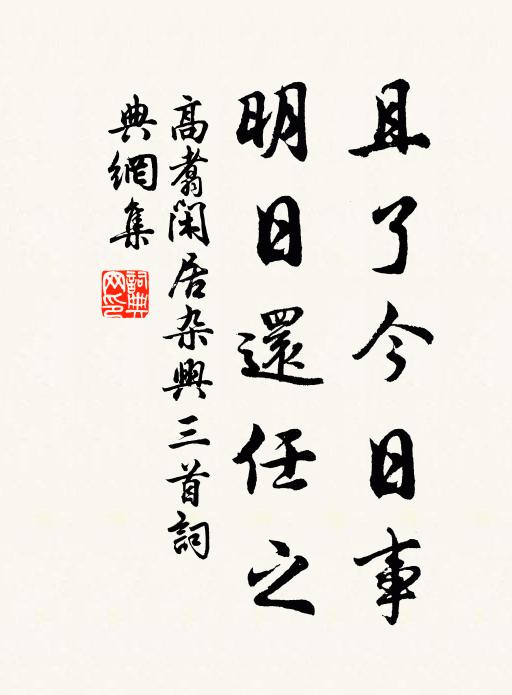 且了今日事
明日還任之
高翥閑居杂興三首詞
典網集
詞典網印